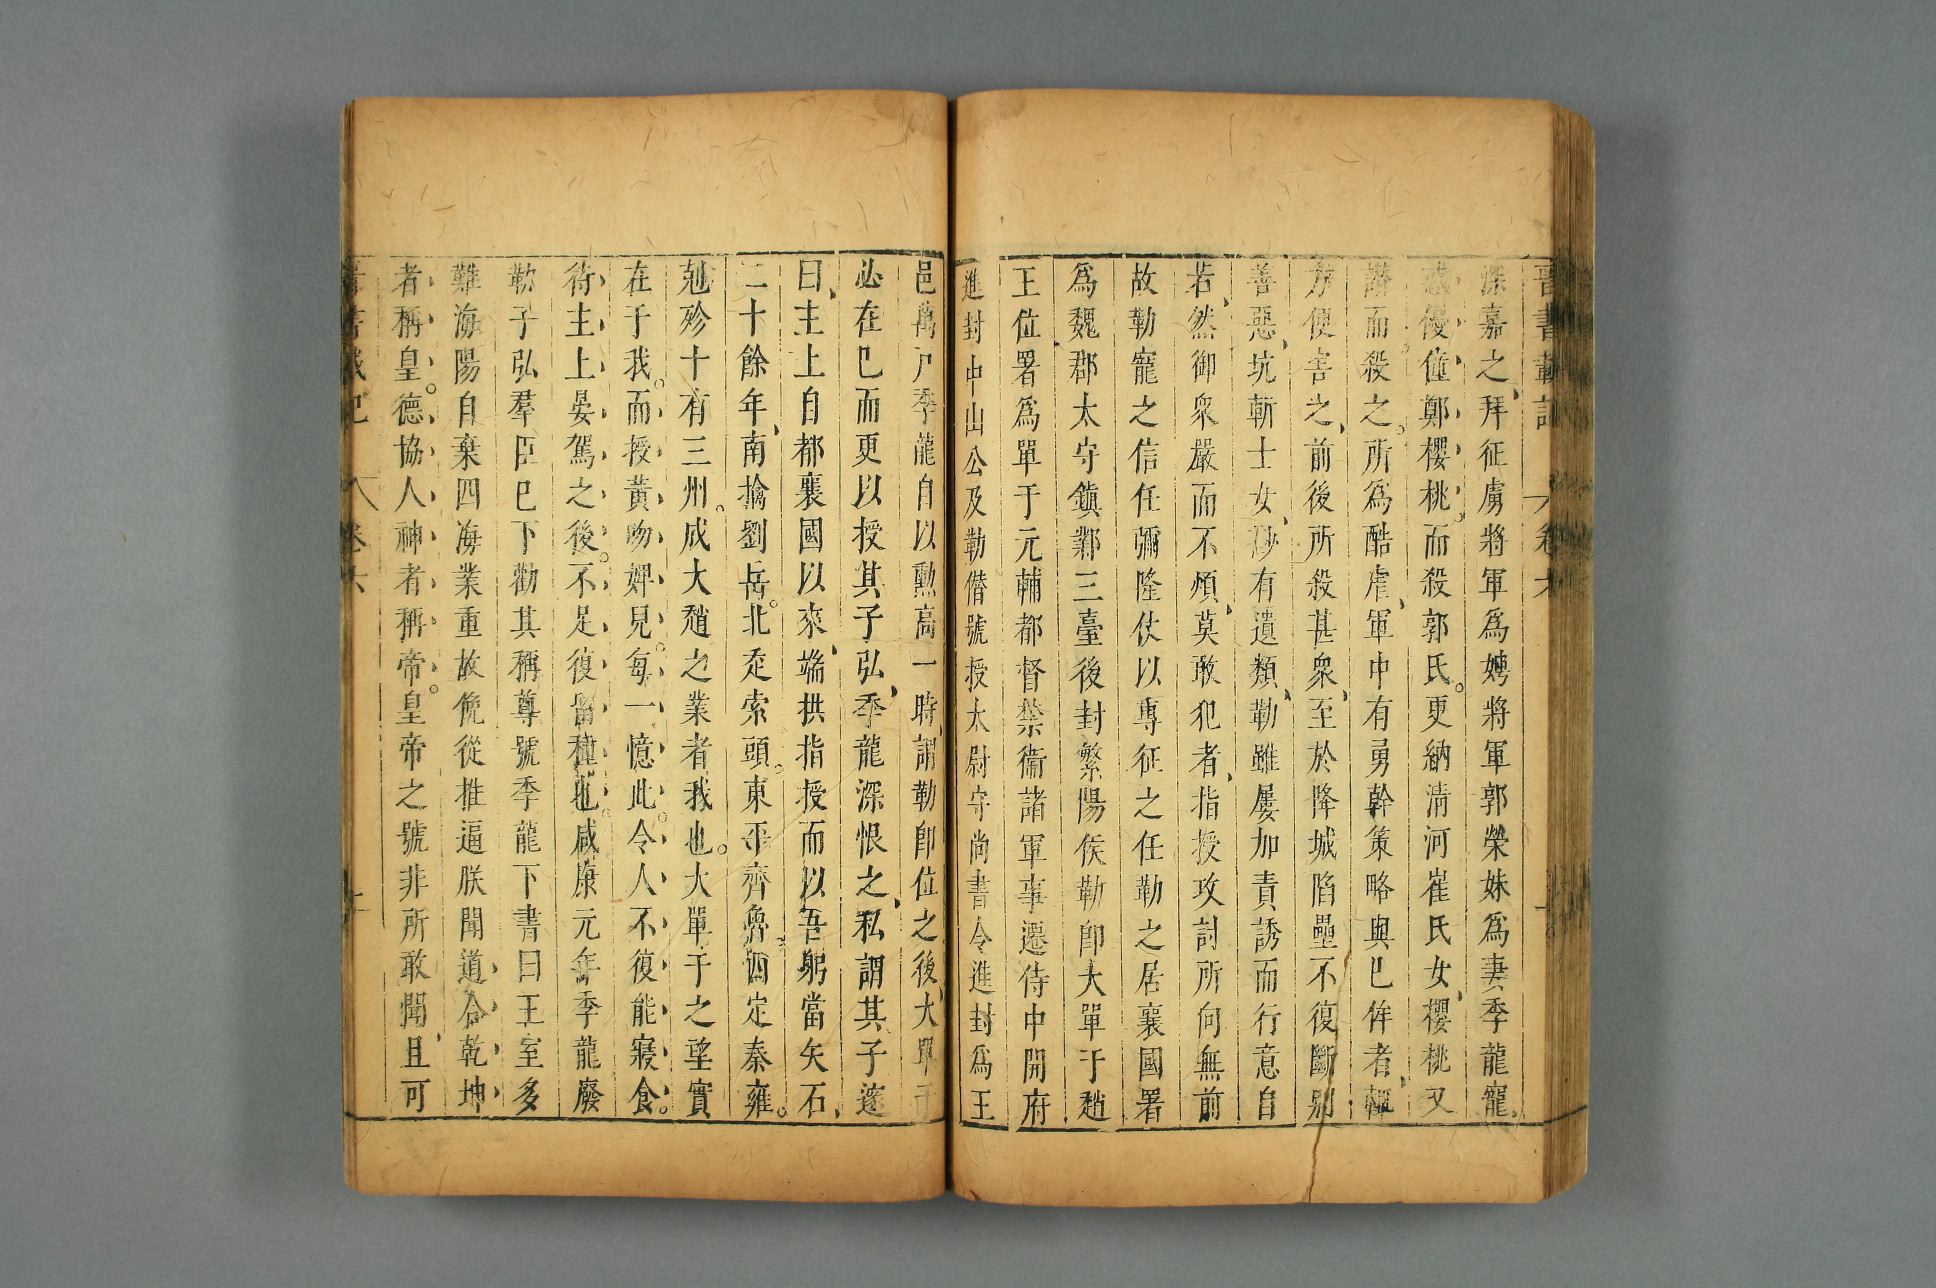 晉書載記 卷六
深嘉之拜征虜將軍爲娉將軍郭榮妹爲妻季龍寵
惑優僮鄭櫻桃而殺郭氏更納淸河崔氏女櫻桃又
譖而殺之所爲酷虐軍中有勇幹策略與巳侔者輒
方便害之前後所殺甚衆至於降城陷壘不復斷别
善惡坑斬士女尠有遺類勒雖屢加責誘而行意自
若然御衆嚴而不煩莫敢犯者指授攻討所向無前
故勒寵之信任彌隆仗以專征之任勒之居襄國署
爲魏郡太守鎭鄴三臺後封繁陽侯勒卽大單于趙
王位署爲單于元輔都督禁衞諸軍事遷侍中開府
進封中山公及勒僭號授太尉守尚書令進封爲王
邑萬戸季龍自以勳高一時謂勒卽位之後大單于
必在巳而更以授其子弘季龍深恨之私謂其子邃
曰主上自都襄國以來端拱指授而以吾躬當矢石
二十餘年南擒劉岳北走索頭東平齊魯西定秦雍
剋殄十有三州成大趙之業者我也大單于之望實
在于我而授黃吻婢兒每一憶此令人不復能寢食
待主上晏駕之後不足復留種也咸康元年季龍廢
勒子弘羣臣巳下勸其稱尊號季龍下書曰王室多
難海陽自棄四海業重故俛從推逼朕聞道合乾坤
者稱皇德協人神者稱帝皇帝之號非所敢聞且可
晉書載記 卷六